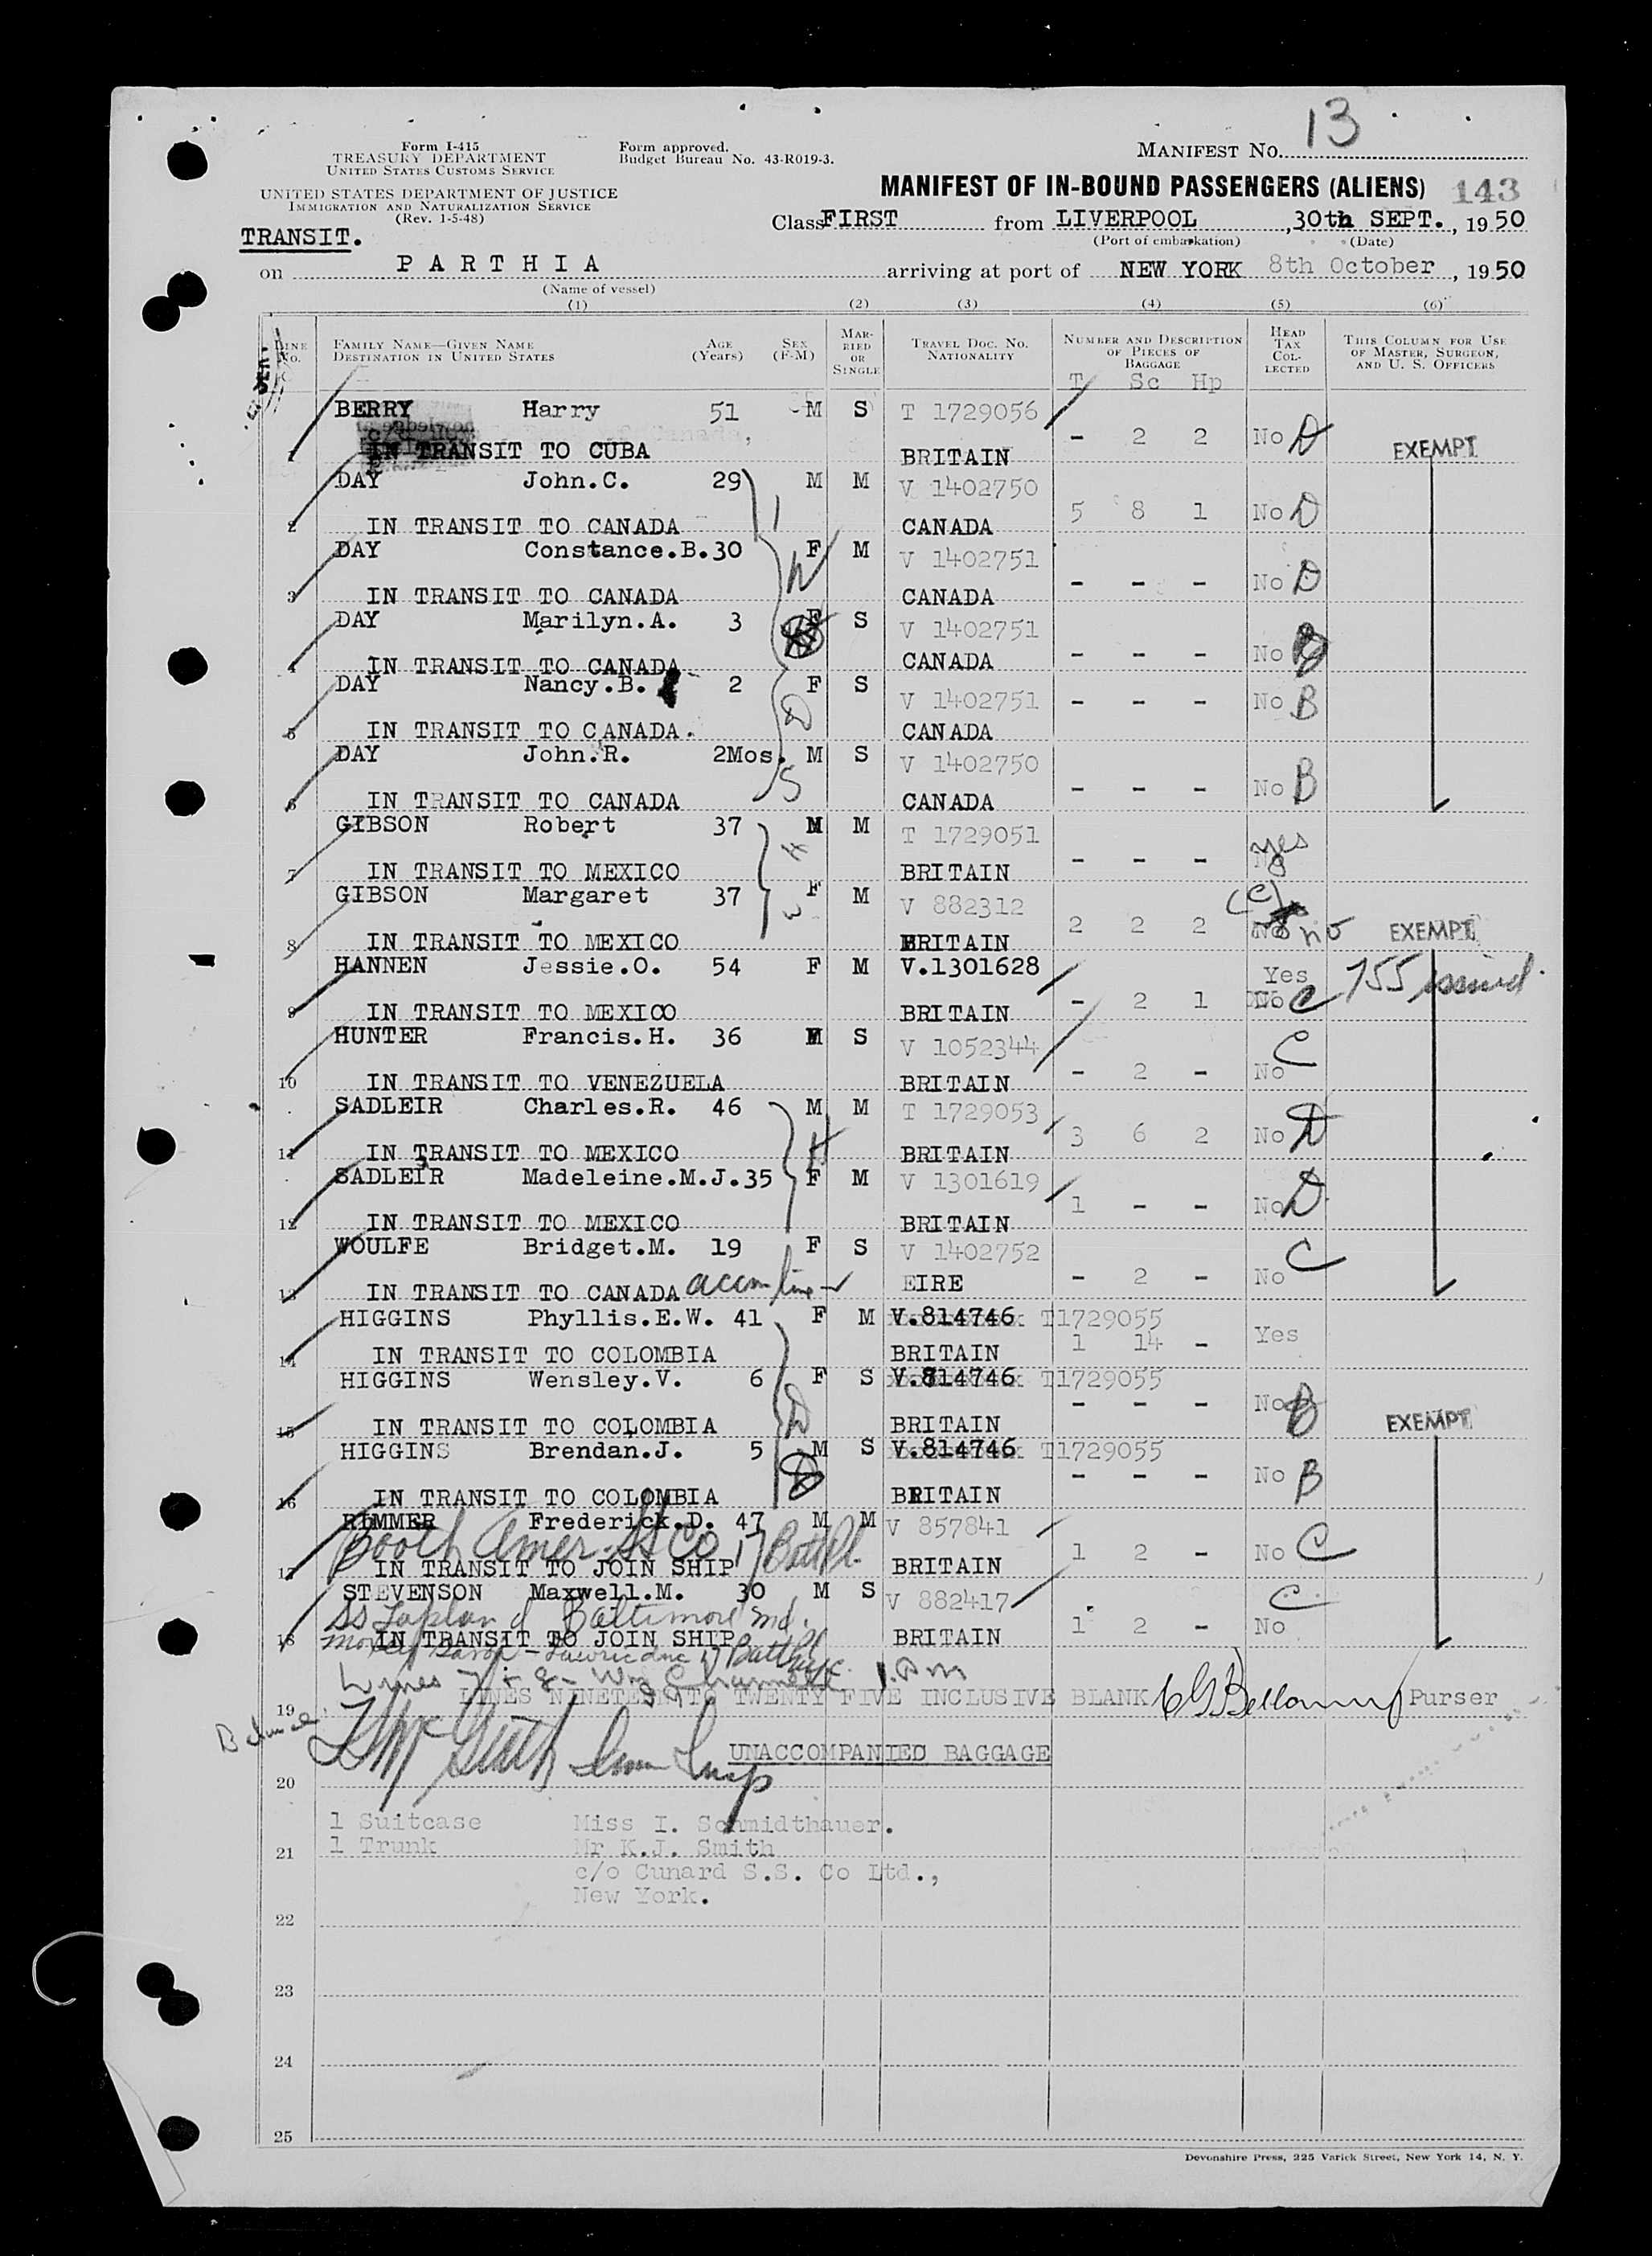 13
Form I-415
TREASURY DEPARTMENT
UNITED STATES CUSTOMS SERVICE
Form approved.
Budget Bureau No. 43-R019-3.
MANIFEST No.
UNITED STATES DEPARTMENT OF JUSTICE
IMMIGRATION AND NATURALIZATION SERVICE
(Rev. 1-5-48)
MANIFEST OF IN-BOUND PASSENGERS (ALIENS) 143
TRANSIT.
Class FIRST from LIVERPOOL, 30th SEPT., 1950
(Port of embarkation) (Date)
on PARTHIA arriving at port of NEW YORK 8th October, 1950
(Name of vessel)
(1) (2) (3) (4) (5) (6)
LINE No. FAMILY NAME—GIVEN NAME DESTINATION IN UNITED STATES AGE (Years) SEX (F-M) MARRIED OR SINGLE TRAVEL DOC. NO. NATIONALITY NUMBER AND DESCRIPTION OF PIECES OF BAGGAGE HEAD TAX COLLECTED THIS COLUMN FOR USE OF MASTER, SURGEON, AND U. S. OFFICERS
T Sc Hp
BERRY Harry 51 M S T 1729056
1 IN TRANSIT TO CUBA BRITAIN - 2 2 No D EXEMPT
DAY John.C. 29 M M V 1402750
2 IN TRANSIT TO CANADA CANADA 5 8 1 No D
DAY Constance.B. 30 F M V 1402751
3 IN TRANSIT TO CANADA CANADA - - - No D
DAY Marilyn.A. 3 F S V 1402751
4 IN TRANSIT TO CANADA CANADA - - - No B
DAY Nancy.B. 2 F S V 1402751
5 IN TRANSIT TO CANADA. CANADA - - - No B
DAY John.R. 2Mos. M S V 1402750
6 IN TRANSIT TO CANADA CANADA - - - No B
GIBSON Robert 37 M M T 1729051
7 IN TRANSIT TO MEXICO BRITAIN - - - No yes
GIBSON Margaret 37 F M V 882312
8 IN TRANSIT TO MEXICO BRITAIN 2 2 2 (C) No no EXEMPT
HANNEN Jessie.O. 54 F M V.1301628
9 IN TRANSIT TO MEXICO BRITAIN - 2 1 Yes No C 755 issued
HUNTER Francis.H. 36 M S V 1052344
10 IN TRANSIT TO VENEZUELA BRITAIN - 2 - No C
SADLEIR Charles.R. 46 M M T 1729053
11 IN TRANSIT TO MEXICO BRITAIN 3 6 2 No D
SADLEIR Madeleine.M.J. 35 F M V 1301619
12 IN TRANSIT TO MEXICO BRITAIN 1 - - No D
WOULFE Bridget.M. 19 F S V 1402752
13 IN TRANSIT TO CANADA EIRE - 2 - No C
HIGGINS Phyllis.E.W. 41 F M V.814746 T1729055
14 IN TRANSIT TO COLOMBIA BRITAIN 1 14 - Yes
HIGGINS Wensley.V. 6 F S V.814746 T1729055
15 IN TRANSIT TO COLOMBIA BRITAIN - - - No B EXEMPT
HIGGINS Brendan.J. 5 M S V.814746 T1729055
16 IN TRANSIT TO COLOMBIA BRITAIN - - - No B
RIMMER Frederick.D. 47 M M V 857841
Booth Amer. SS Co 17 Batt Pl.
17 IN TRANSIT TO JOIN SHIP BRITAIN 1 2 - No C
STEVENSON Maxwell.M. 30 M S V 882417
SS Baltimore Md.
18 IN TRANSIT TO JOIN SHIP BRITAIN 1 2 - No C
Lines 7 & 8 - Wm
19 LINES NINETEEN TO TWENTY FIVE INCLUSIVE BLANK Purser
UNACCOMPANIED BAGGAGE
20
1 Suitcase Miss I. Schmidthauer.
21 1 Trunk Mr K.J. Smith
c/o Cunard S.S. Co Ltd.,
New York.
22
23
24
25
Devonshire Press, 225 Varick Street, New York 14, N. Y.